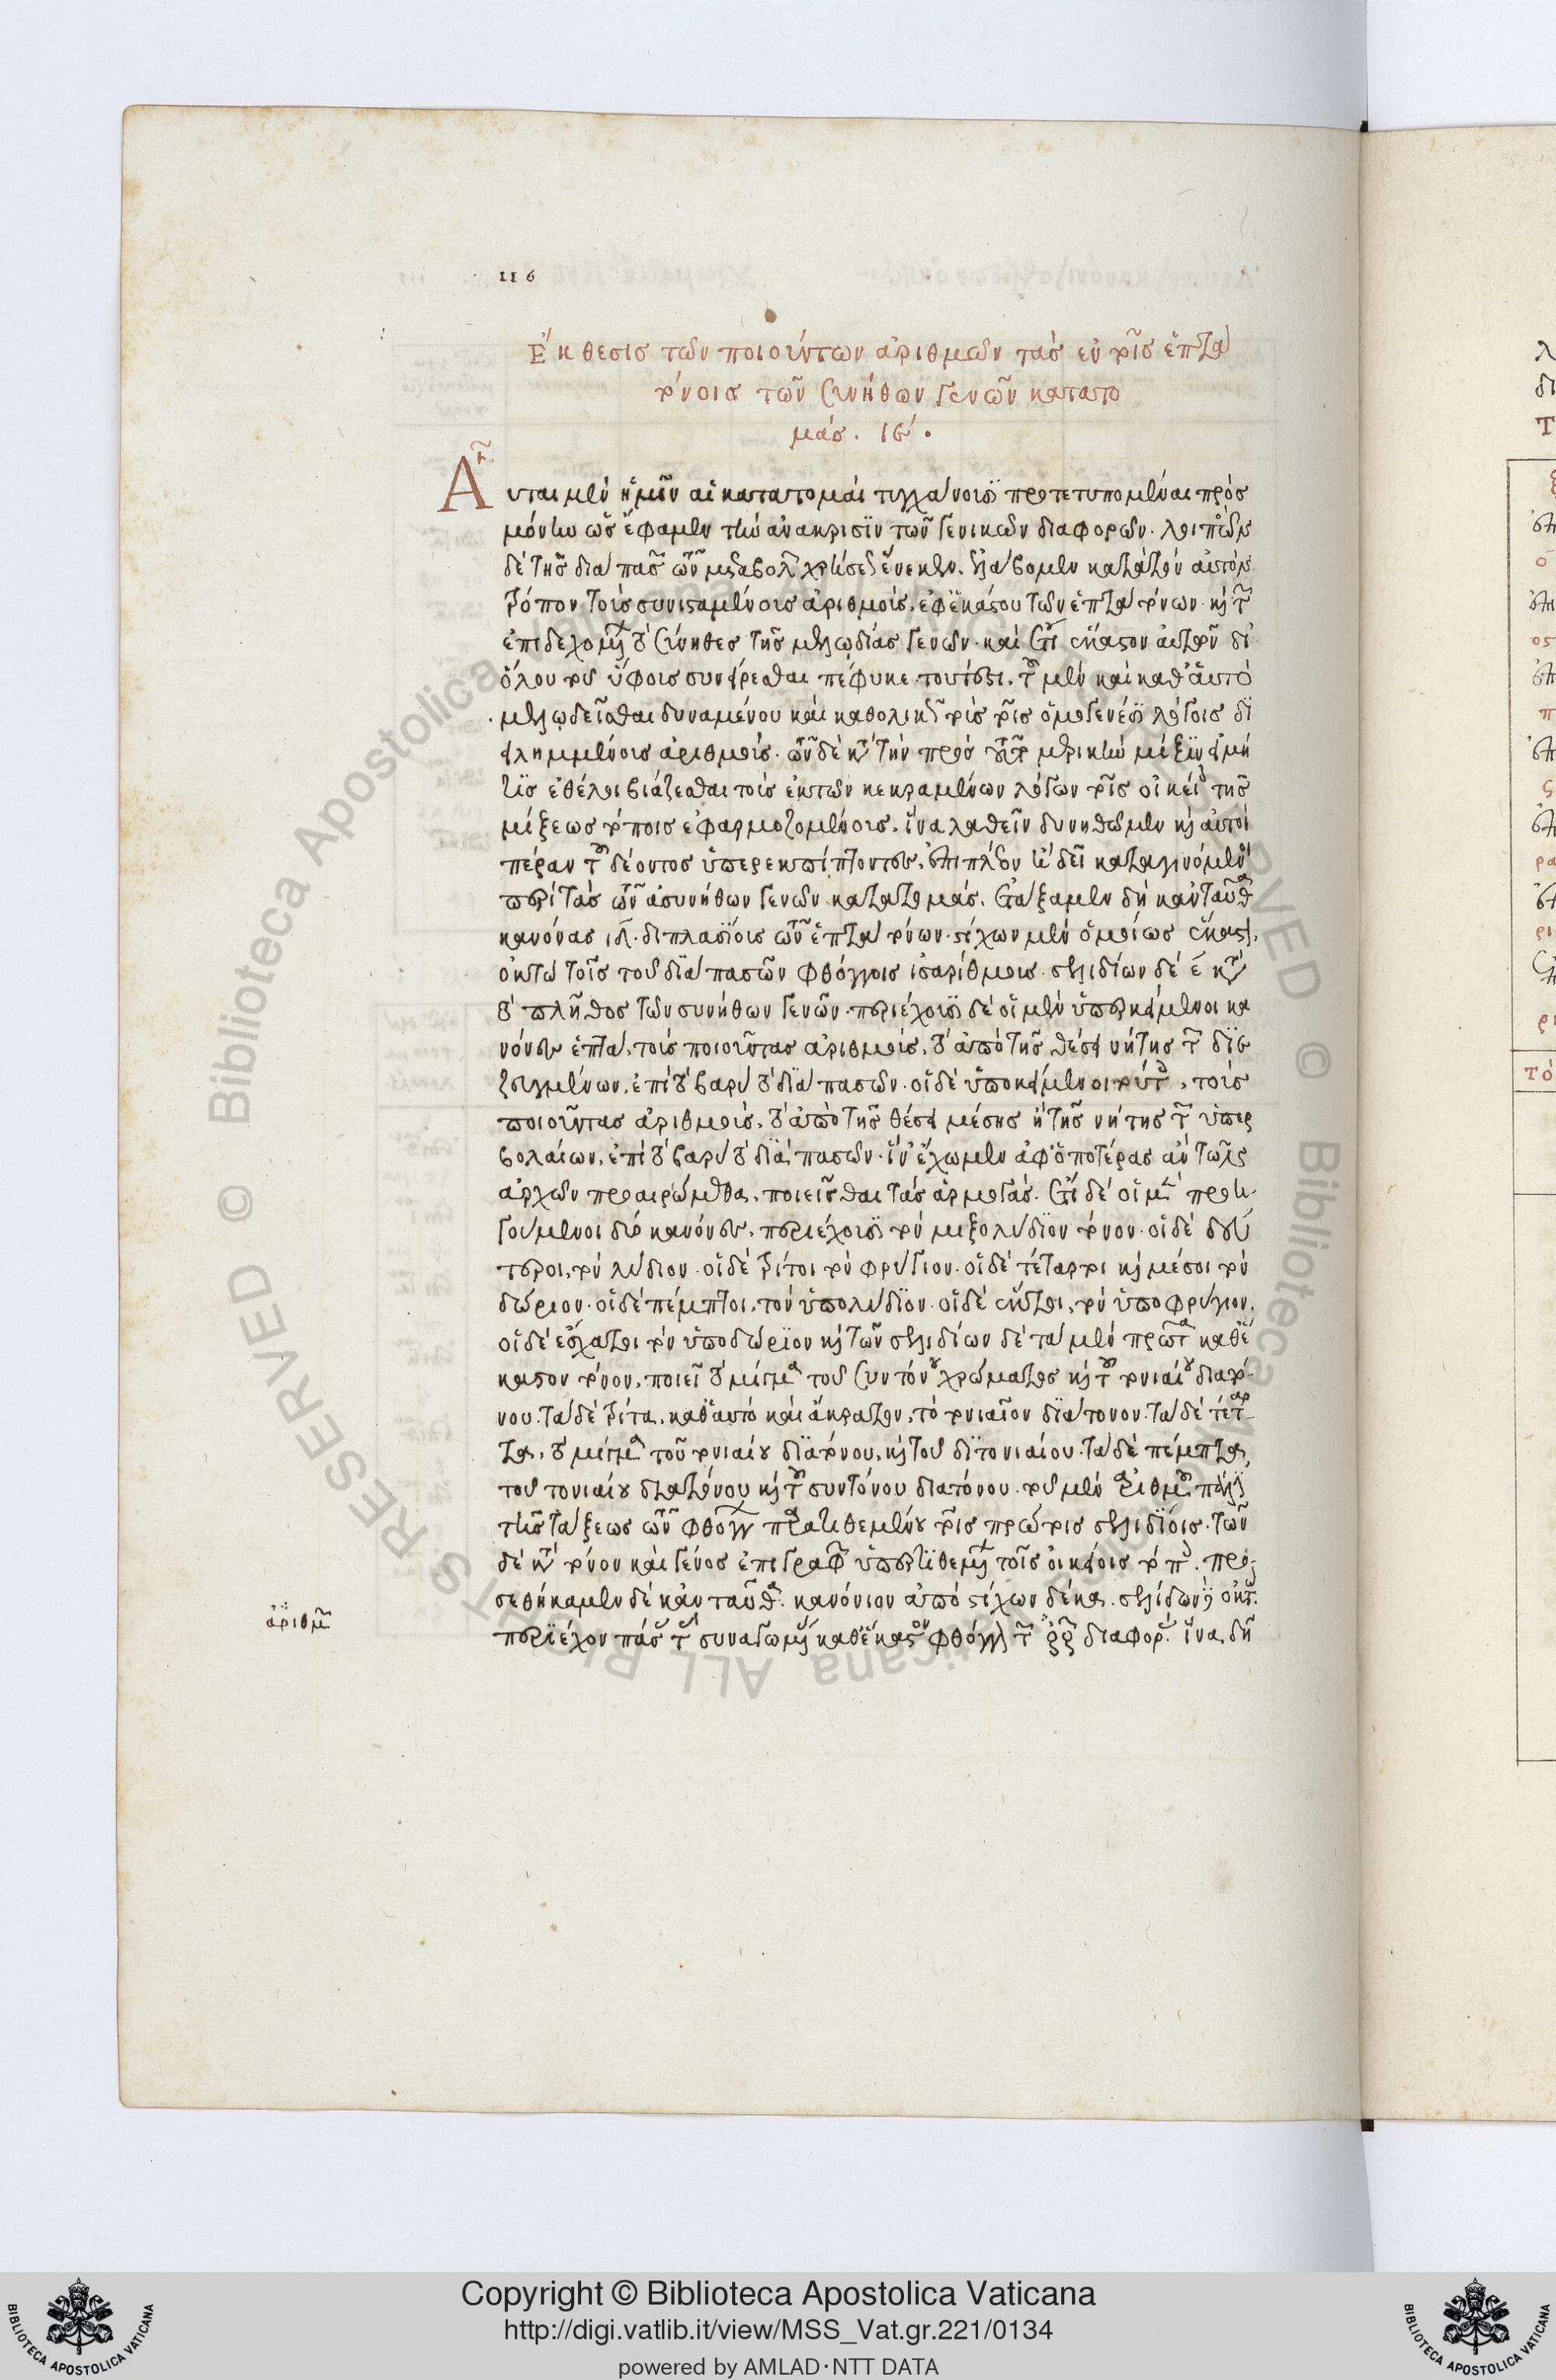 116
Ἔκθεσις τῶν ποιούντων ἀριθμῶν τὰς ἐν τοῖς ἑπτὰ
τόνοις τῶν συνήθων γενῶν κατατο
μάς. ιδ.
Αὗται μὲν ἡμῖν αἱ κατατομαὶ τυγχάνουσι προτετυπομέναι πρὸς
μόνην ὡς ἔφαμεν τὴν ἀνάκρισιν τῶν γενικῶν διαφορῶν.
δὲ τῆς διὰ πασῶν μεταβολῆς χρήσεως ἕνεκεν. ἐλάβομεν κατὰ τὸν αὐτὸν
τρόπον τοὺς συνισταμένους ἀριθμούς. ἐφ' ἑκάστου τῶν ἑπτὰ τόνων. καὶ τῶν
ἐπιδεχομένων τὸ σύνηθες τῆς μελῳδίας γενῶν. καὶ ἕκαστον αὐτῶν δι'
ὅλου τοῦ ὕφους συναίρεσθαι πέφυκε. τουτέστι. τοῦ μὲν καὶ καθ' αὑτὸ
μελῳδεῖσθαι δυναμένου καὶ καθόλου τοὺς τοῖς ὁμογενέσι λόγοις δι
ειλημμένους ἀριθμούς. τῶν δὲ κατὰ τὴν πρὸς τοῦτο μετρικὴν μίξιν εἰ μή
τις ἐθέλοι βιάζεσθαι τοὺς ἐκ τῶν κεκραμένων λόγων τοῖς οἰκείοις τῆς
μίξεως τόποις ἐφαρμοζομένους. ἵνα λαθεῖν δυνηθῶμεν καὶ αὐτοὶ
πέραν τοῦ δέοντος ὑπερεκπίπτοντες. ἐπιπλέον ἢ δεῖ καταγινόμενοι
περὶ τὰς τῶν ἀσυνήθων γενῶν κατατομάς. ἐτάξαμεν δὴ κἀνταῦθα
κανόνας ιδ. διπλασίους τῶν ἑπτὰ τόνων. στίχων μὲν ὁμοίως ἕκαστον.
ὀκτὼ τοῖς τοῦ διὰ πασῶν φθόγγοις ἰσαρίθμοις. σελιδίων δὲ ε κατὰ
τὸ πλῆθος τῶν συνήθων γενῶν. περιέχουσι δὲ οἱ μὲν ὑπερκείμενοι κα
νόνες ἑπτά. τοὺς ποιοῦντας ἀριθμούς. τὸ ἀπὸ τῆς θέσει νήτης τῶν διε
ζευγμένων. ἐπὶ τὸ βαρὺ τὸ διὰ πασῶν. οἱ δὲ ὑποκείμενοι τούτων, τοὺς
ποιοῦντας ἀριθμούς. τὸ ἀπὸ τῆς θέσει μέσης ἢ τῆς νήτης τῶν ὑπερ
βολαίων. ἐπὶ τὸ βαρὺ τὸ διὰ πασῶν. ἵν' ἔχωμεν ἀφ' ὁποτέρας ἂν τῶν
ἀρχῶν προαιρώμεθα. ποιεῖσθαι τὰς ἁρμογάς. ἔτι δὲ οἱ μὲν προη
γούμενοι δύο κανόνες. περιέχουσι τὸν μιξολύδιον τόνον. οἱ δὲ δεύ
τεροι. τὸν λύδιον. οἱ δὲ τρίτοι τὸν φρύγιον. οἱ δὲ τέταρτοι καὶ μέσοι τὸν
δώριον. οἱ δὲ πέμπτοι. τὸν ὑπολύδιον. οἱ δὲ ἕκτοι. τὸν ὑποφρύγιον.
οἱ δὲ ἔσχατοι τὸν ὑποδώριον καὶ τῶν σελιδίων δὲ τὰ μὲν πρῶτα καθ' ἕ
καστον τόνον. ποιεῖ τὸ μίγμα τοῦ συντόνου χρώματος καὶ τοῦ τονιαίου διατό
νου. τὰ δὲ τρίτα. καθ' αὑτὸ καὶ ἄκρατον. τὸ τονιαῖον διάτονον. τὰ δὲ τέταρ
τα. τὸ μίγμα τοῦ τονιαίου διατόνου. καὶ τοῦ διτονιαίου. τὰ δὲ πέμπτα,
τοῦ τονιαίου διατόνου καὶ τοῦ συντόνου διατόνου. τοῦ μὲν ἀριθμοῦ πάλιν
τῆς τάξεως τῶν φθόγγων παρατιθεμένου τοῖς πρώτοις σελιδίοις. τῶν
δὲ κατὰ τόνον καὶ γένος ἐπιγραφῶν ὑπερτιθεμένων τοῖς οἰκείοις τόποις. προσ
εθήκαμεν δὲ κἀνταῦθα. κανόνιον ἀπὸ στίχων δέκα. σελίδων ὀκτώ.
περιέχον πάσας τὰς συναγομένας καθ' ἕκαστον φθόγγον τῶν διαφοράς. ἵνα δῆ
ἀριθμ
Copyright © Biblioteca Apostolica Vaticana
http://digi.vatlib.it/view/MSS_Vat.gr.221/0134
powered by AMLAD·NTT DATA